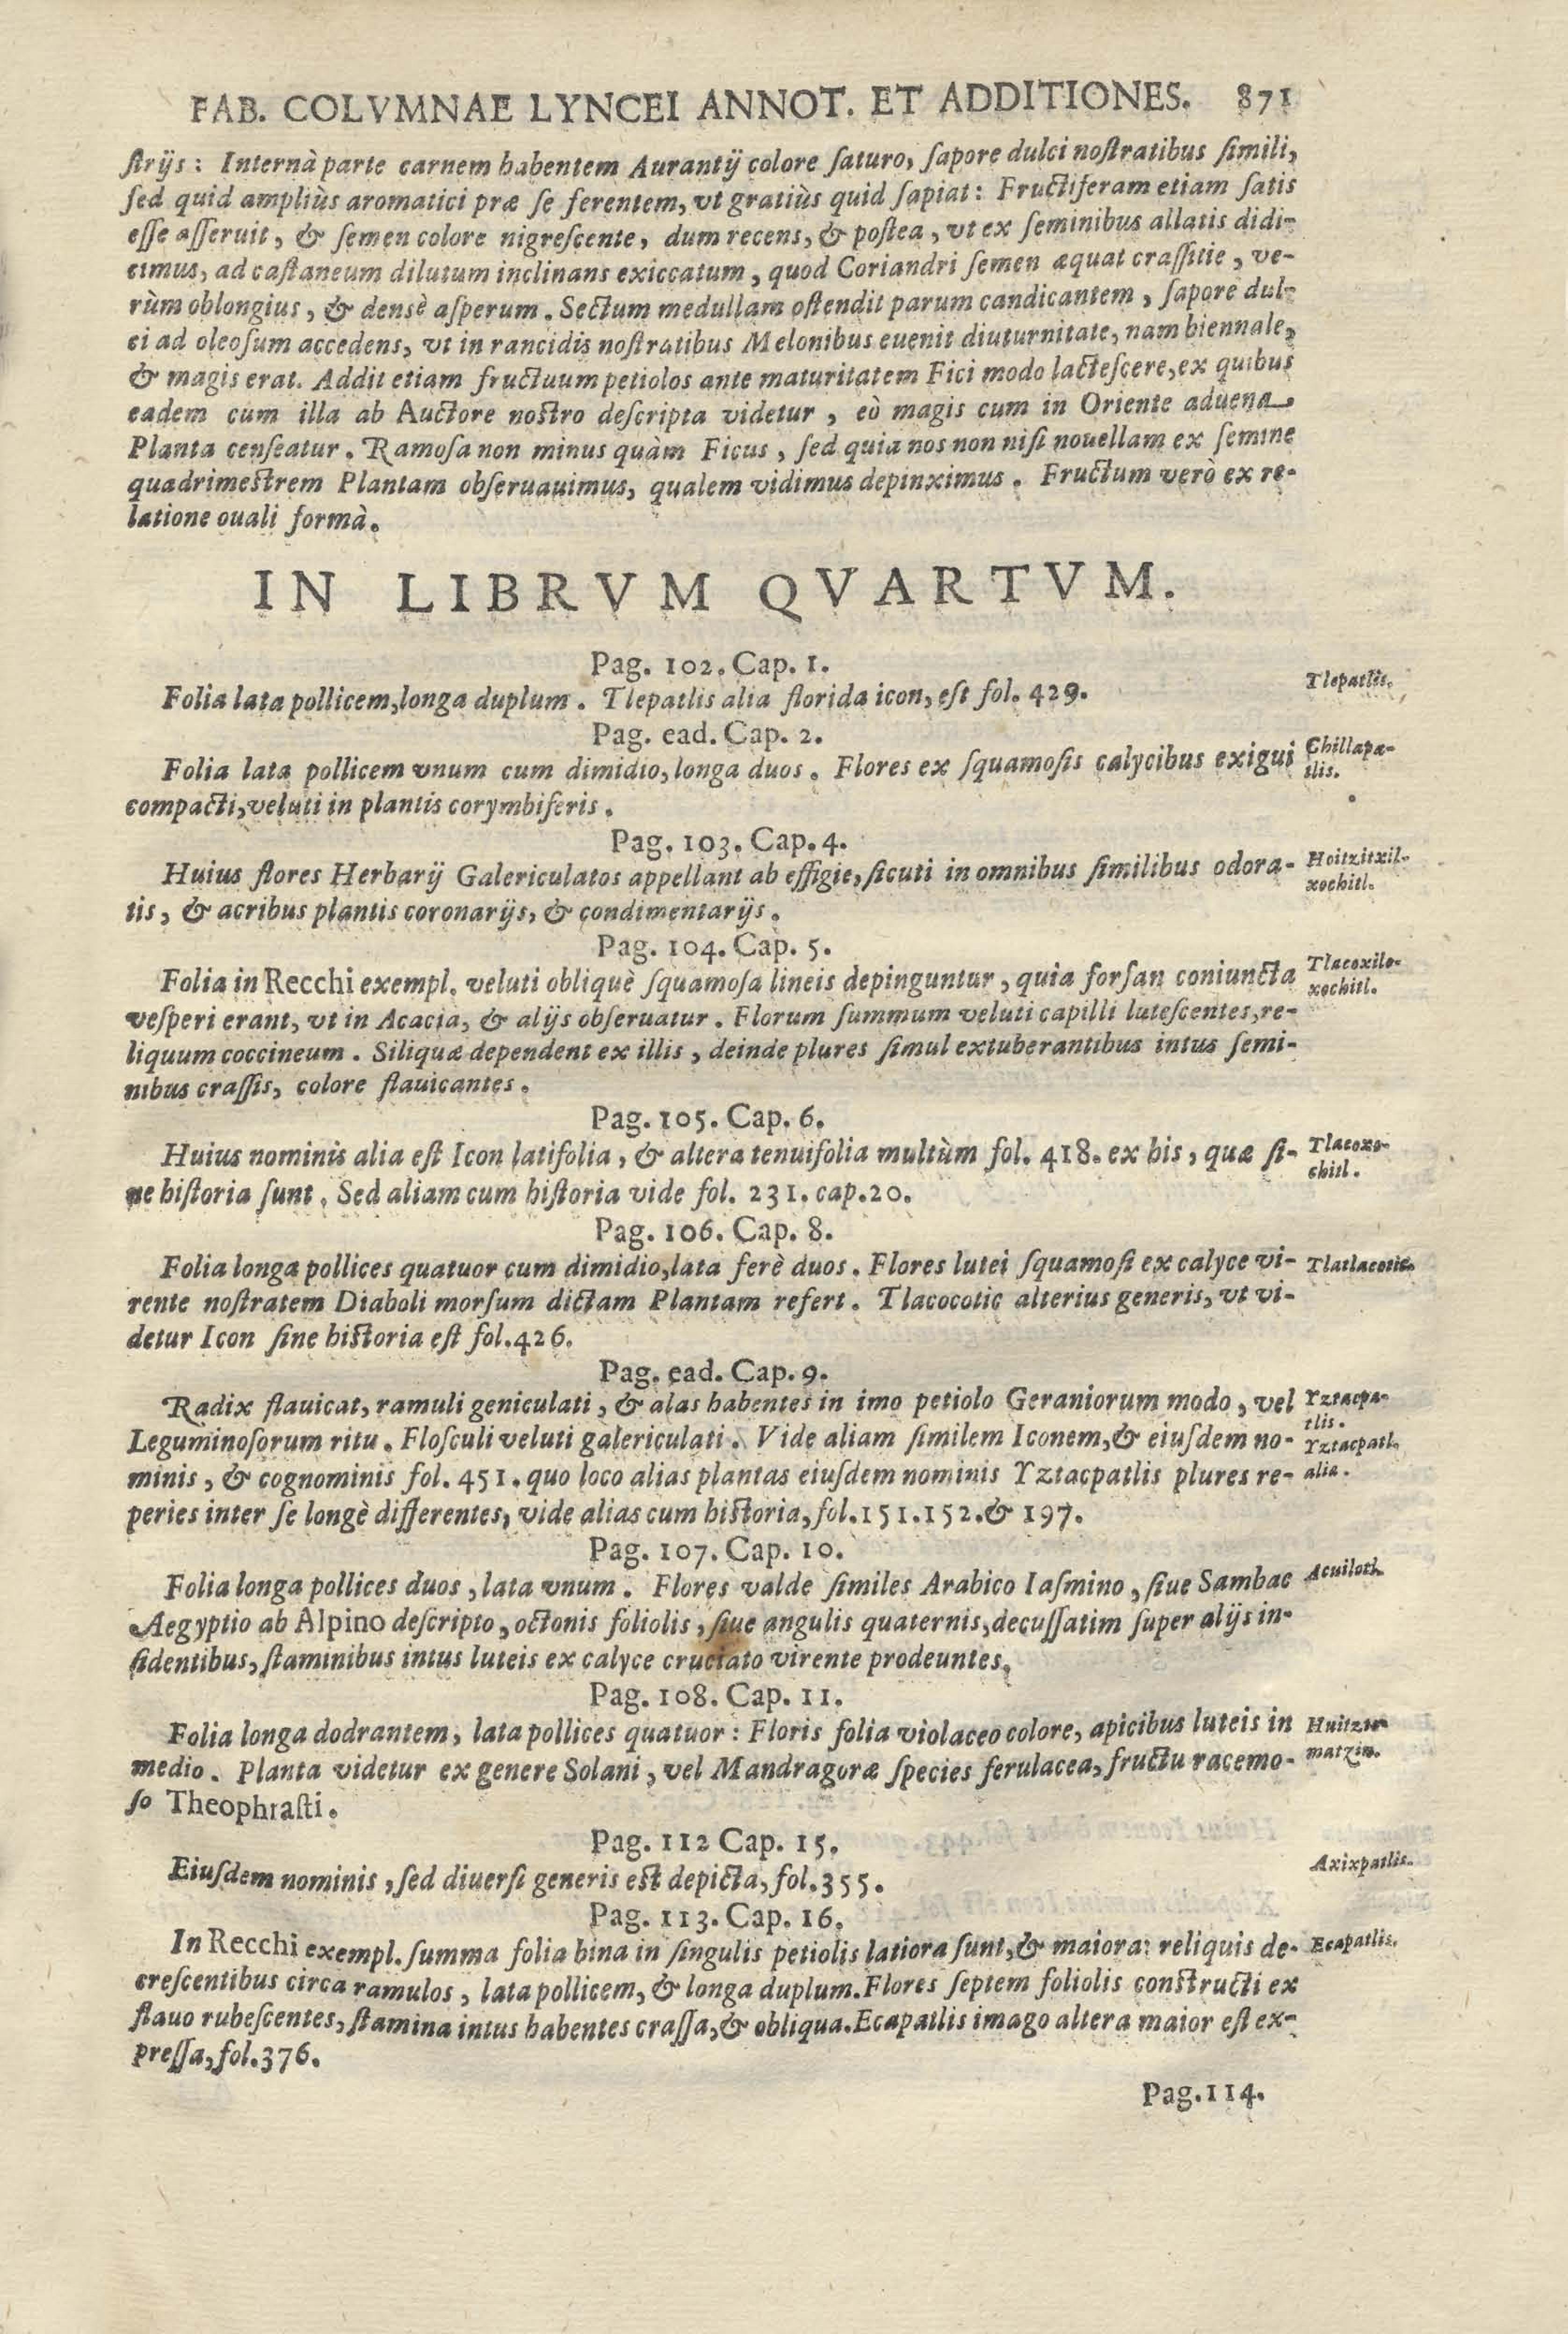 FAB. COLVMNAE LYNCEI ANNOT. ET ADDITIONES. 871
ſtrijs: Internà parte carnem habentem Aurantij colore ſaturo, ſapore dulci noſtratibus ſimili,
ſed quid ampliùs aromatici præ ſe ferentem, vt gratiùs quid ſapiat: Fructiferam etiam ſatis
eſſe aſſeruit, & ſemen colore nigreſcente, dum recens, & poſtea, vt ex ſeminibus allatis didi-
cimus, ad caſtaneum dilutum inclinans exiccatum, quod Coriandri ſemen æquat craſſitie, ve-
rùm oblongius, & densè aſperum. Sectum medullam oſtendit parum candicantem, ſapore dul-
ci ad oleoſum accedens, vt in rancidis noſtratibus Melonibus euenit diuturnitate, nam biennale,
& magis erat. Addit etiam fructuum petiolos ante maturitatem Fici modo lacteſcere, ex quibus
eadem cum illa ab Auctore noſtro deſcripta videtur, eò magis cum in Oriente aduena
Planta cenſeatur. Ramoſa non minus quàm Ficus, ſed quia nos non niſi nouellam ex ſemine
quadrimeſtrem Plantam obſeruauimus, qualem vidimus depinximus. Fructum verò ex re-
latione ouali formà.
IN LIBRVM QVARTVM.
Pag. 102. Cap. 1.
Folia lata pollicem, longa duplum. Tlepatlis alia florida icon, eſt fol. 429.
Tlepatlis.
Pag. ead. Cap. 2.
Folia lata pollicem vnum cum dimidio, longa duos. Flores ex ſquamoſis calycibus exigui
compacti, veluti in plantis corymbiferis.
Chillapa-
tlis.
Pag. 103. Cap. 4.
Huius flores Herbarij Galericulatos appellant ab effigie, ſicuti in omnibus ſimilibus odora-
tis, & acribus plantis coronarijs, & condimentarijs.
Hoitzitxil-
xochitl.
Pag. 104. Cap. 5.
Folia in Recchi exempl. veluti obliquè ſquamoſa lineis depinguntur, quia forſan coniuncta
veſperi erant, vt in Acacia, & alijs obſeruatur. Florum ſummum veluti capilli luteſcentes, re-
liquum coccineum. Siliquæ dependent ex illis, deinde plures ſimul extuberantibus intus ſemi-
nibus craſſis, colore flauicantes.
Tlacoxilo-
xochitl.
Pag. 105. Cap. 6.
Huius nominis alia eſt Icon latifolia, & altera tenuifolia multùm fol. 418. ex his, quæ ſi-
ne hiſtoria ſunt. Sed aliam cum hiſtoria vide fol. 231. cap. 20.
Tlacoxo-
chitl.
Pag. 106. Cap. 8.
Folia longa pollices quatuor cum dimidio, lata ferè duos. Flores lutei ſquamoſi ex calyce vi-
rente noſtratem Diaboli morſum dictam Plantam refert. Tlacocotic alterius generis, vt vi-
detur Icon ſine hiſtoria eſt fol. 426.
Tlatlacotic.
Pag. ead. Cap. 9.
Radix flauicat, ramuli geniculati, & alas habentes in imo petiolo Geraniorum modo, vel
Leguminoſorum ritu. Floſculi veluti galericulati. Vide aliam ſimilem Iconem, & eiuſdem no-
minis, & cognominis fol. 451. quo loco alias plantas eiuſdem nominis Yztacpatlis plures re-
peries inter ſe longè differentes, vide alias cum hiſtoria, fol. 151. 152. & 197.
Yztacpa-
tlis.
Yztacpatl.
alia.
Pag. 107. Cap. 10.
Folia longa pollices duos, lata vnum. Flores valde ſimiles Arabico Iaſmino, ſiue Sambac
Aegyptio ab Alpino deſcripto, octonis foliolis, ſiue angulis quaternis, decuſſatim ſuper alijs in-
ſidentibus, ſtaminibus intus luteis ex calyce cruciato virente prodeuntes.
Acuilotl.
Pag. 108. Cap. 11.
Folia longa dodrantem, lata pollices quatuor: Floris folia violaceo colore, apicibus luteis in
medio. Planta videtur ex genere Solani, vel Mandragoræ ſpecies ferulacea, fructu racemo-
ſo Theophraſti.
matzin.
Pag. 112 Cap. 15.
Eiuſdem nominis, ſed diuerſi generis eſt depicta, fol. 355.
Axixpatlis.
Pag. 113. Cap. 16.
In Recchi exempl. ſumma folia bina in ſingulis petiolis latiora ſunt, & maiora: reliquis de-
creſcentibus circa ramulos, lata pollicem, & longa duplum. Flores ſeptem foliolis conſtructi ex
flauo rubeſcentes, ſtamina intus habentes craſſa, & obliqua. Ecapatlis imago altera maior eſt ex-
preſſa, fol. 376.
Ecapatlis.
Pag. 114.